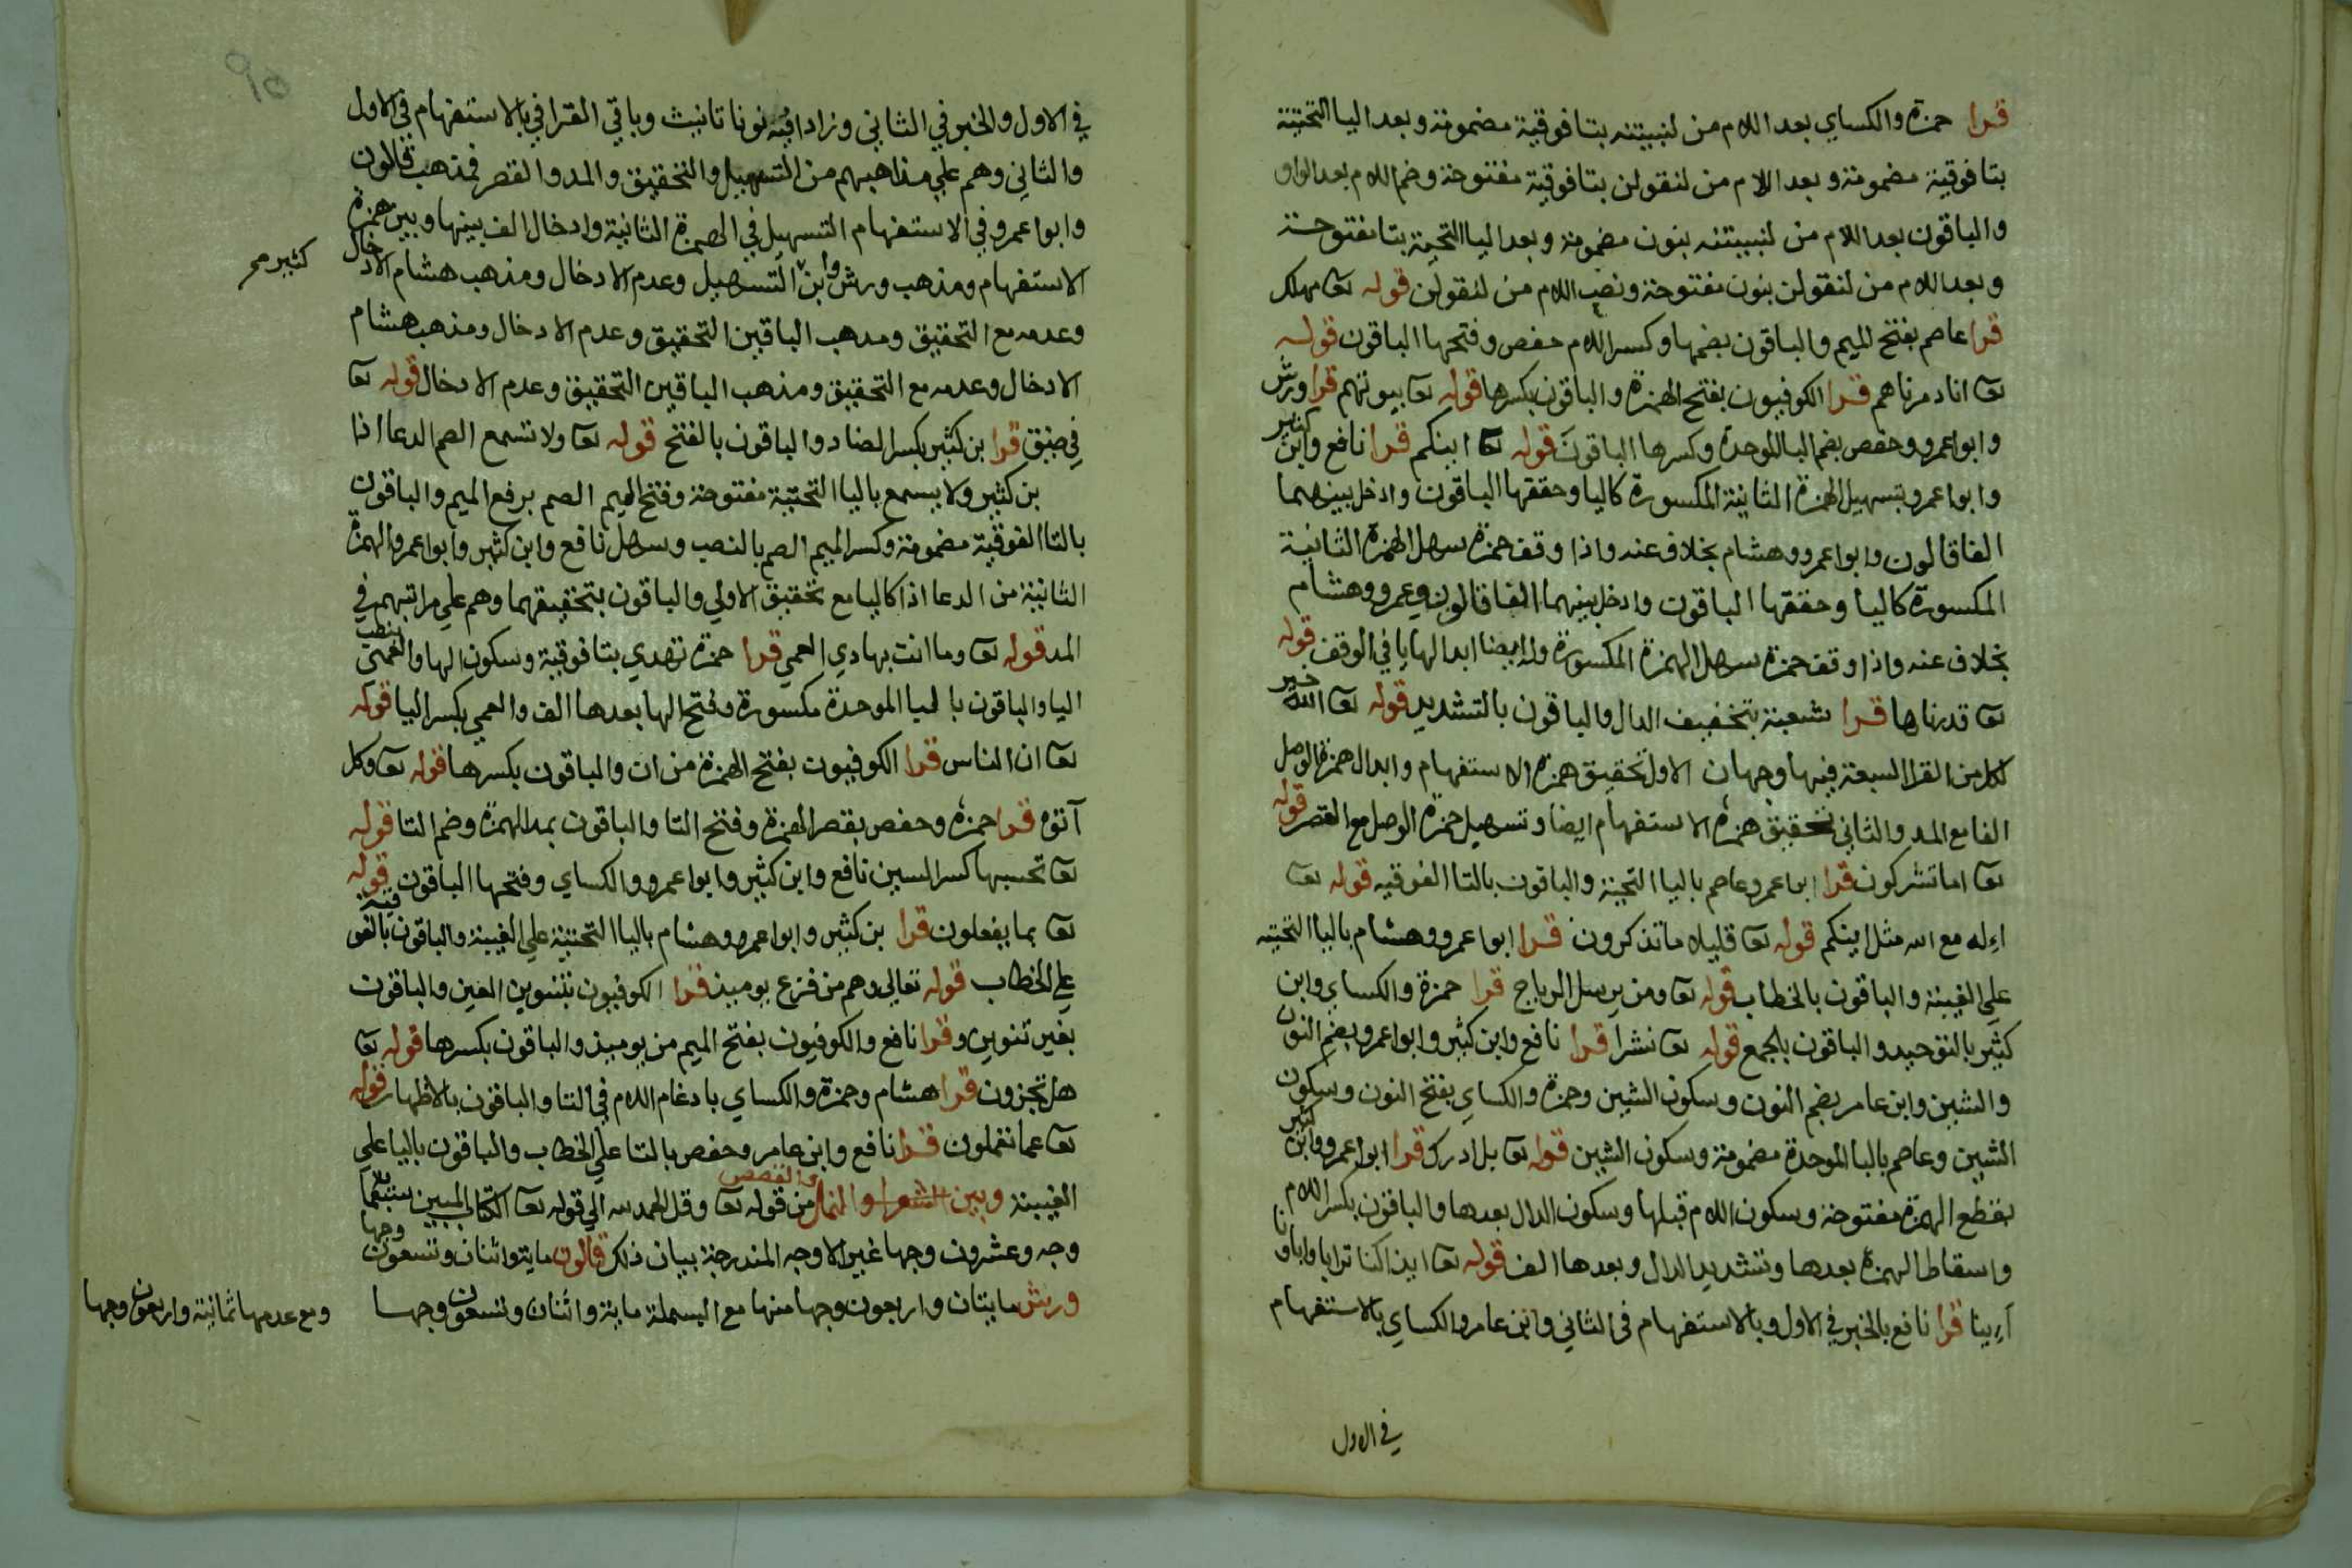 قرا حمزة والكساي بعد اللام من لنبيتنه بتا فوقية مضمومة وبعد اليا التحتية
بتا فوقية مضمومة وبعد اللام من لنقولن بتا فوقية مفتوحة وضم اللام بعد الواو
والباقون بعد اللام من لنبيتنه بنون مضمومة وبعد اليا التحتية بتا مفتوحة
وبعد اللام من لنقولن بنون مفتوحة ونصب اللام من لنقولن قوله تعا مهلك
قرا عاصم بفتح الميم والباقون بضمها وكسر اللام حفص وفتحها الباقون قوله
تعا انا دمرناهم قرا الكوفيون بفتح الهمزة والباقون بكسرها قوله تعا بيوتهم قرا ورش
وابوا عمرو وحفص بضم البا الموحدة وكسرها الباقون قوله تعا اينكم قرا نافع وابن كثير
وابوا عمرو بتسهيل الهمزة الثانية المكسورة كاليا وحققها الباقون وادخل بينهما
الفا قالون وابوا عمرو وهشام بخلاف عنه واذا وقف حمزة سهل الهمزة الثانية
المكسورة كاليا وحققها الباقون وادخل بينهما الفا قالون وعمرو وهشام
بخلاف عنه واذا وقف حمزة سهل الهمزة المكسورة وله ايضا ابدالها يا في الوقف قوله
تعا قدرناها قرا شعبة بتخفيف الدال والباقون بالتشديد قوله تعا الله خير
لكل من القرا السبعة فيها وجهان الاول تحقيق همزة الاستفهام وابدال همزة الوصل
الفا مع المد والثاني تحقيق همزة الاستفهام ايضا وتسهيل همزة الوصل مع القصر قوله
تعا اما تشركون قرا ابو عمرو عاصم باليا التحتية والباقون بالتا الفوقيه قوله تعا
اءله مع الله مثل اينكم قوله تعا قليلا ما تذكرون قرا ابوا عمرو وهشام باليا التحتيه
علي الغيبة والباقون بالخطاب قوله تعا ومن يرسل الرياح قرا حمزة والكساي وابن
كثير بالتوحيد والباقون بالجمع قوله تعا نشرا قرا نافع وابن كثير وابوا عمرو بضم النون
والشين وابن عامر بضم النون وسكون الشين وحمزة والكساي بفتح النون وسكون
الشين وعاصم بالبا الموحدة مضمومة وسكون الشين قوله تعا بل ادرك قرا ابوا عمرو وابن كثير
بقطع الهمزة مفتوحة وسكون اللام قبلها وسكون الدال بعدها والباقون بكسر اللام
واسقاط الهمزة بعدها وتشديد الدال وبعدها الف قوله تعا ايذا كنا ترابا واباونا
اءينا قرا نافع بالخبر في الاول وبالاستفهام في الثاني وابن عامر والكساي بالاستفهام
في الاول
في الاول والخبر في الثاني وزادا فيه نونا تانيث وباقي القرا في بالاستفهام في الاول
والثاني وهم علي مذاهبهم من التسهيل والتحقيق والمد والقصر فمذهب قالون
وابوا عمرو في الاستفهام التسهيل في الهمزة الثانية وادخال الف بينها وبين همزة
الاستفهام ومذهب ورش وابن التسهيل وعدم الادخال ومذهب هشام الادخال
كثير صح
وعدمه مع التحقيق ومدهب الباقين التحقيق وعدم الادخال ومذهب هشام
الادخال وعدمه مع التحقيق ومذهب الباقين التحقيق وعدم الادخال قوله تعا
في ضيق قرا بن كثير بكسر الضاد والباقون بالفتح قوله تعا ولا تسمع الصم الدعا اذا
بن كثير ولا يسمع باليا التحتية مفتوحة وفتح الميم الصم برفع الميم والباقون
بالتا الفوقية مضمومة وكسر الميم الصم بالنصب وسهل نافع وابن كثير وابوا عمرو الهمزة
الثانية من الدعا اذا كاليا مع تحقيق الاولي والباقون بتحقيقهما وهم علي مراتبهم في
المد قوله تعا وما انت بهادي العمي قرا حمزة تهدي بتا فوقية وسكون الها والعمي بنصب
اليا والباقون باليا الموحدة مكسورة وفتح الها بعدها الف والعمي بكسر اليا قوله
تعا ان الناس قرا الكوفيون بفتح الهمزة من ان والباقون بكسرها قوله تعا وكل
آتوه قرا حمزة وحفص بقصر الهمزة وفتح التا والباقون بمد الهمزة وضم التا قوله
تعا تحسبها كسر السين نافع وابن كثير وابوا عمرو والكساي وفتحها الباقون قوله
تعا بما يفعلون قرا بن كثير وابوا عمرو وهشام باليا التحتية علي الغيبة والباقون بالفوقية
علي الخطاب قوله تعالى وهم من فزع يوميذ قرا الكوفيون بتنوين العين والباقون
بغير تنوين وقرا نافع والكوفيون بفتح الميم من يوميذ والباقون بكسرها قوله تعا
هل تجزون قرا هشام وحمزة والكساي بادغام اللام في التا والباقون بالاظهار قوله
تعا عما تعملون قرا نافع وابن عامر وحفص بالتا علي الخطاب والباقون باليا على
الغيبة وبين الشعرا والنمل والقصص من قوله تعا وقل الحمد لله الي قوله تعا الكتاب المبين ستماية
وجه وعشرون وجها غير الاوجه المندرجة بيان ذلك قالون مايتوا ثنان وتسعون وجها
ورش مايتان واربعون وجها منها مع البسملة ماية واثنان وتسعون وجها
ومع عدمها ثمانية واربعون وجها